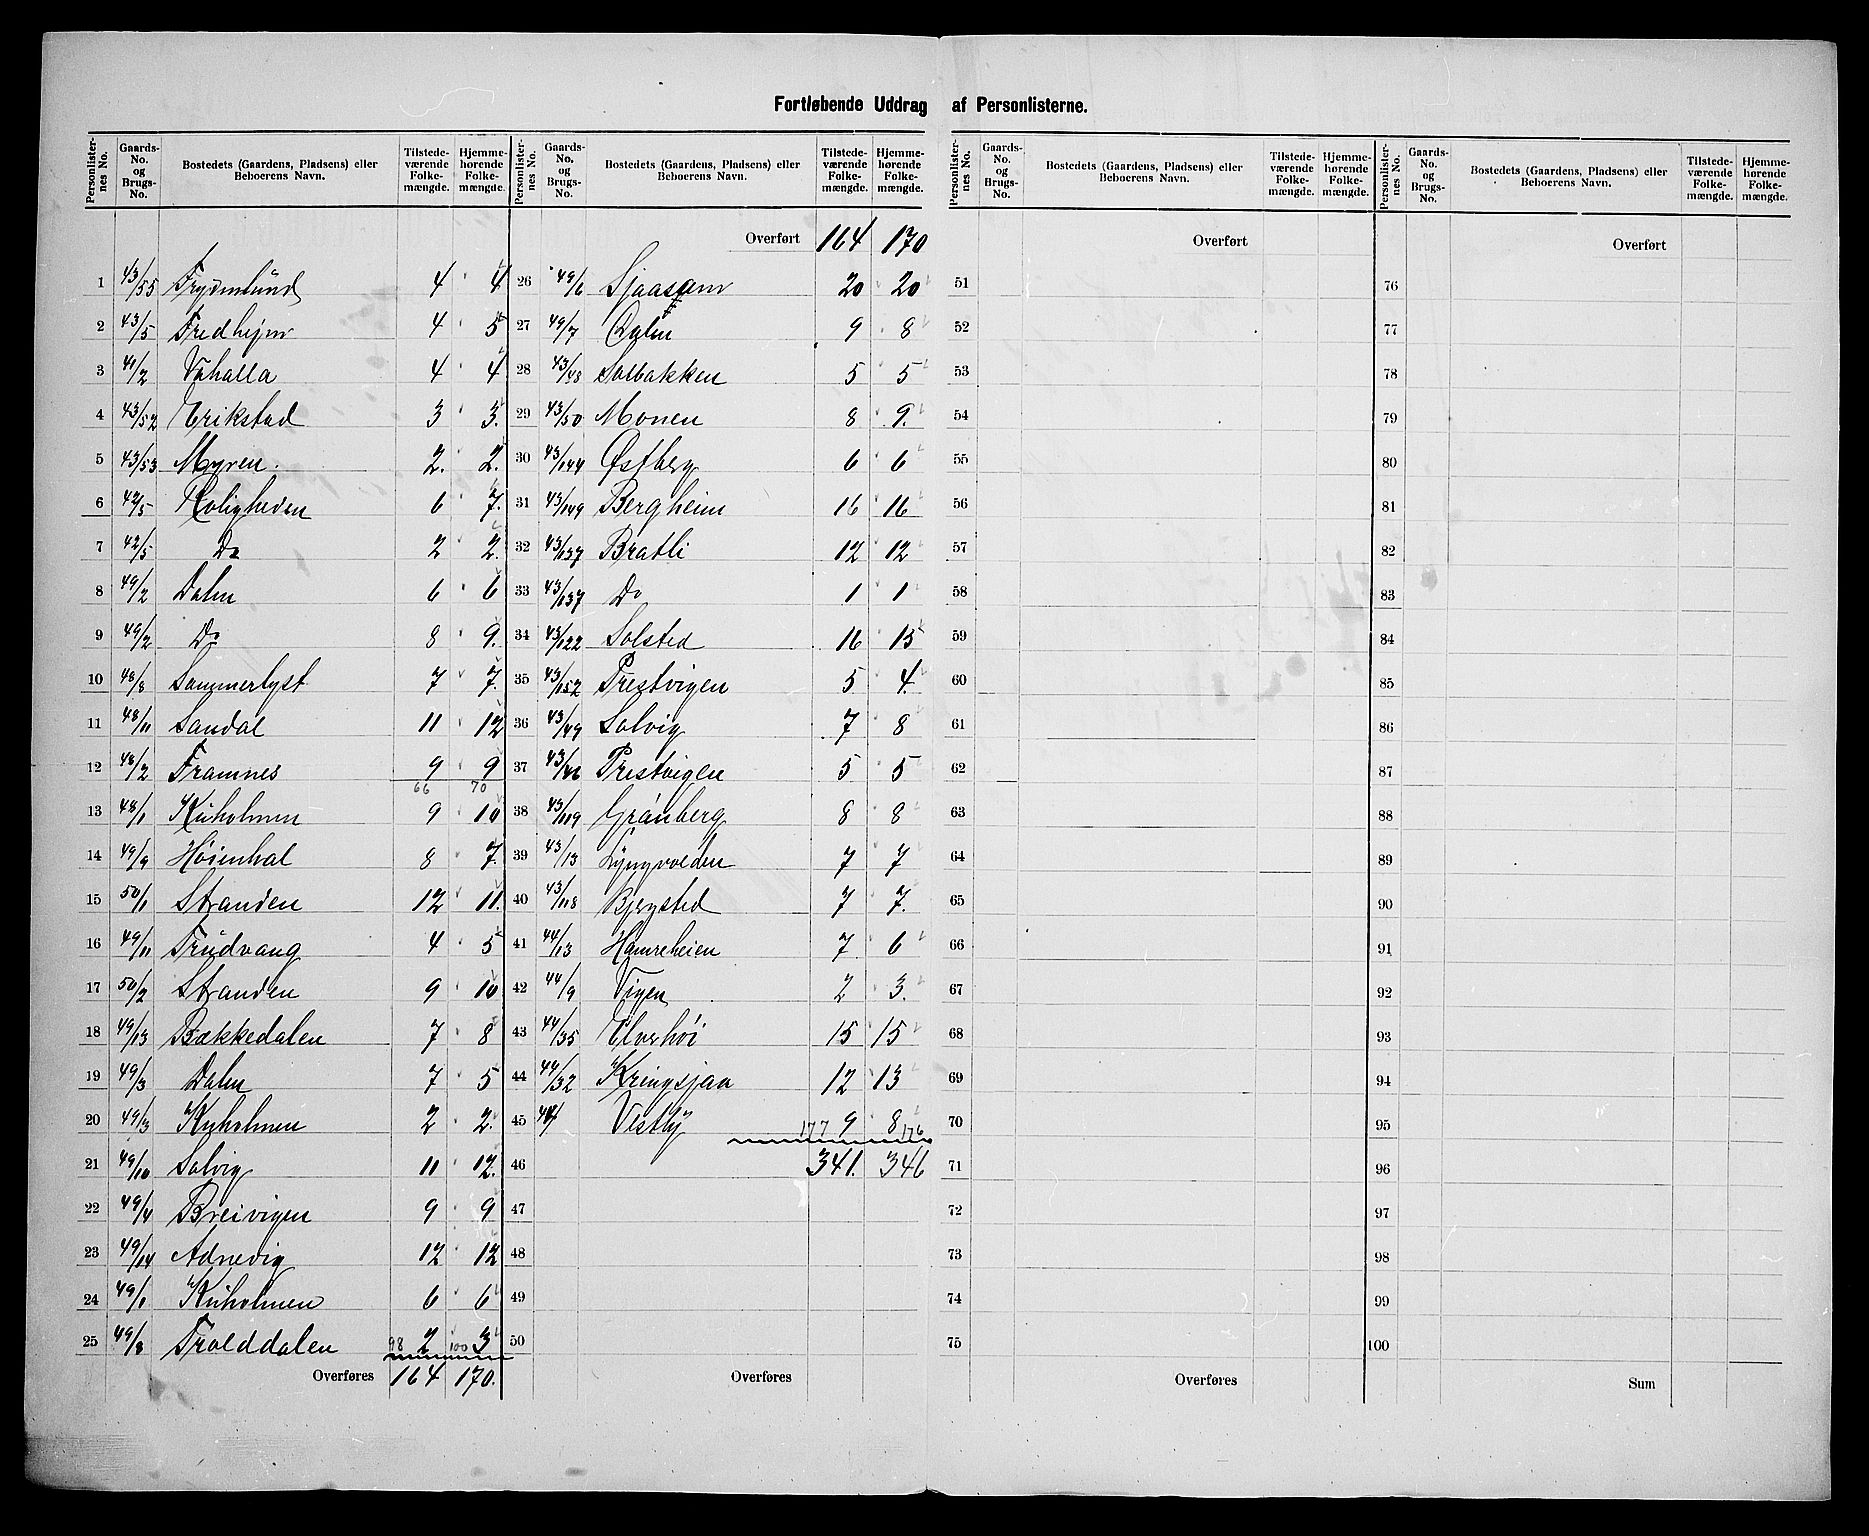 Fortløbende Uddrag af Personlisterne.
Personlisternes No. Gaards-No. og Brugs-No. Bostedets (Gaardens, Pladsens) eller Beboerens Navn. Tilstedeværende Folkemængde. Hjemmehørende Folkemængde.
1 43/55 Frydenlund 4 4
2 43/5 Fredhejm 4 5
3 41/2 Vahalla 4 4
4 43/52 Erikstad 3 3.
5 43/53 Myren. 2. 2.
6 42/5 Roligheden 6 7.
7 42/5 Do 2 2.
8 49/2 Dalen 6 6
9 49/2 Do 8 9.
10 48/8 Sommerlyst 7 7.
11 48/11 Sandal 11 12
12 48/2 Framnes 9 9
66 70
13 48/1 Kuholmen 9 10
14 49/9 Høienhal 8 7.
15 50/1 Stranden 12 11.
16 49/11 Trudvang 4 5
17 50/2 Stranden 9 10
18 49/13 Bækkedalen 7 8
19 49/3 Dalen 7 5
20 49/3 Kuholmen 2 2.
21 49/10 Solvig 11 12.
22 49/4 Breivigen 9 9
23 49/14 Adnevig 12 12
24 49/1 Kuholmen 6 6
25 49/8 Trolddalen 98 2 100 3
Overføres 164 170.
Personlisternes No. Gaards-No. og Brugs-No. Bostedets (Gaardens, Pladsens) eller Beboerens Navn. Tilstedeværende Folkemængde. Hjemmehørende Folkemængde.
Overført 164 170
26 49/6 Sjaasam 20 20
27 49/7 Dalen 9 8
28 43/48 Solbakken 5 5
29 43/50 Monen 8 9.
30 43/144 Østberg 6 6
31 43/149 Bergheim 16 16
32 43/137 Bratli 12 12
33 43/137 Do 1 1
34 43/122 Solsted 16 15
35 43/152 Prestvigen 5 4.
36 43/49 Solvig 7 8
37 43/46 Prestvigen 5 5
38 43/119 Grønberg 8 8
39 43/13 Lyngvolden 7 7
40 43/118 Bjergsted 7 7.
41 44/13 Hamreheien 7 6
42 44/9 Vigen 2 3.
43 44/35 Elverhöi 15 15
44 44/32 Kringsjaa 12 13
45 44/ Vestby 177 9 8 176
46 341. 346
47
48
49
50
Overføres
Personlisternes No. Gaards-No. og Brugs-No. Bostedets (Gaardens, Pladsens) eller Beboerens Navn. Tilstedeværende Folkemængde. Hjemmehørende Folkemængde.
Overført
51
52
53
54
55
56
57
58
59
60
61
62
63
64
65
66
67
68
69
70
71
72
73
74
75
Overføres
Personlisternes No. Gaards-No. og Brugs-No. Bostedets (Gaardens, Pladsens) eller Beboerens Navn. Tilstedeværende Folkemængde. Hjemmehørende Folkemængde.
Overført
76
77
78
79
80
81
82
83
84
85
86
87
88
89
90
91
92
93
94
95
96
97
98
99
100
Sum